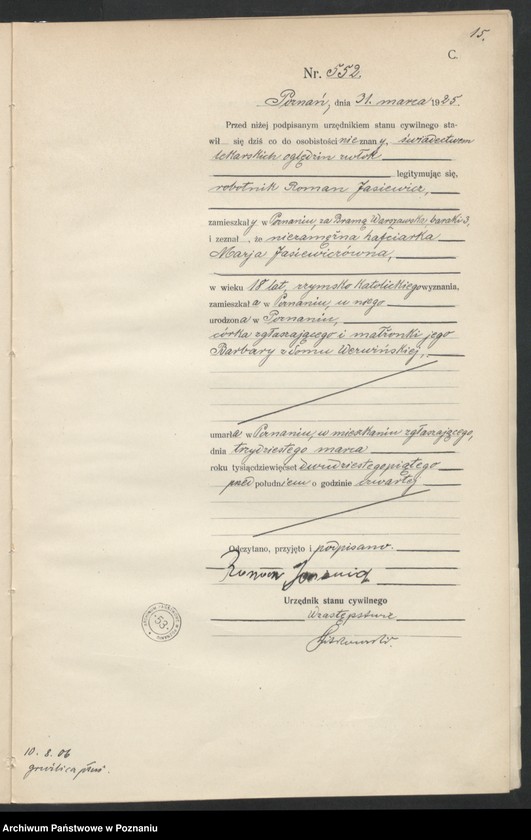 15.
C.
Nr. 552.
Poznań, dnia 31. marca 1925.
Przed niżej podpisanym urzędnikiem stanu cywilnego sta-
wił się dziś co do osobistości nieznany, świadectwem
lekarskich oględzin zwłok
legitymując się,
robotnik Roman Jasiewicz,
zamieszkały w Poznaniu, za Bramą Warszawską baraki 3,
i zeznał, że niezamężna hafciarka
Marja Jasiewiczówna,
w wieku 18 lat, rzymsko katolickiego wyznania,
zamieszkała w Poznaniu, u niego
urodzona w Poznaniu,
córka zgłaszającego i małżonki jego
Barbary z domu Werwińskiej,
umarła w Poznaniu, w mieszkaniu zgłaszającego,
dnia trzydziestego marca
roku tysiącdziewięćset dwudziestegopiątego
przed południem o godzinie czwartej
Odczytano, przyjęto i podpisano.
Roman
Urzędnik stanu cywilnego
W zastępstwie
53
10. 8. 06
gruźlica płuc.
Archiwum Państwowe w Poznaniu